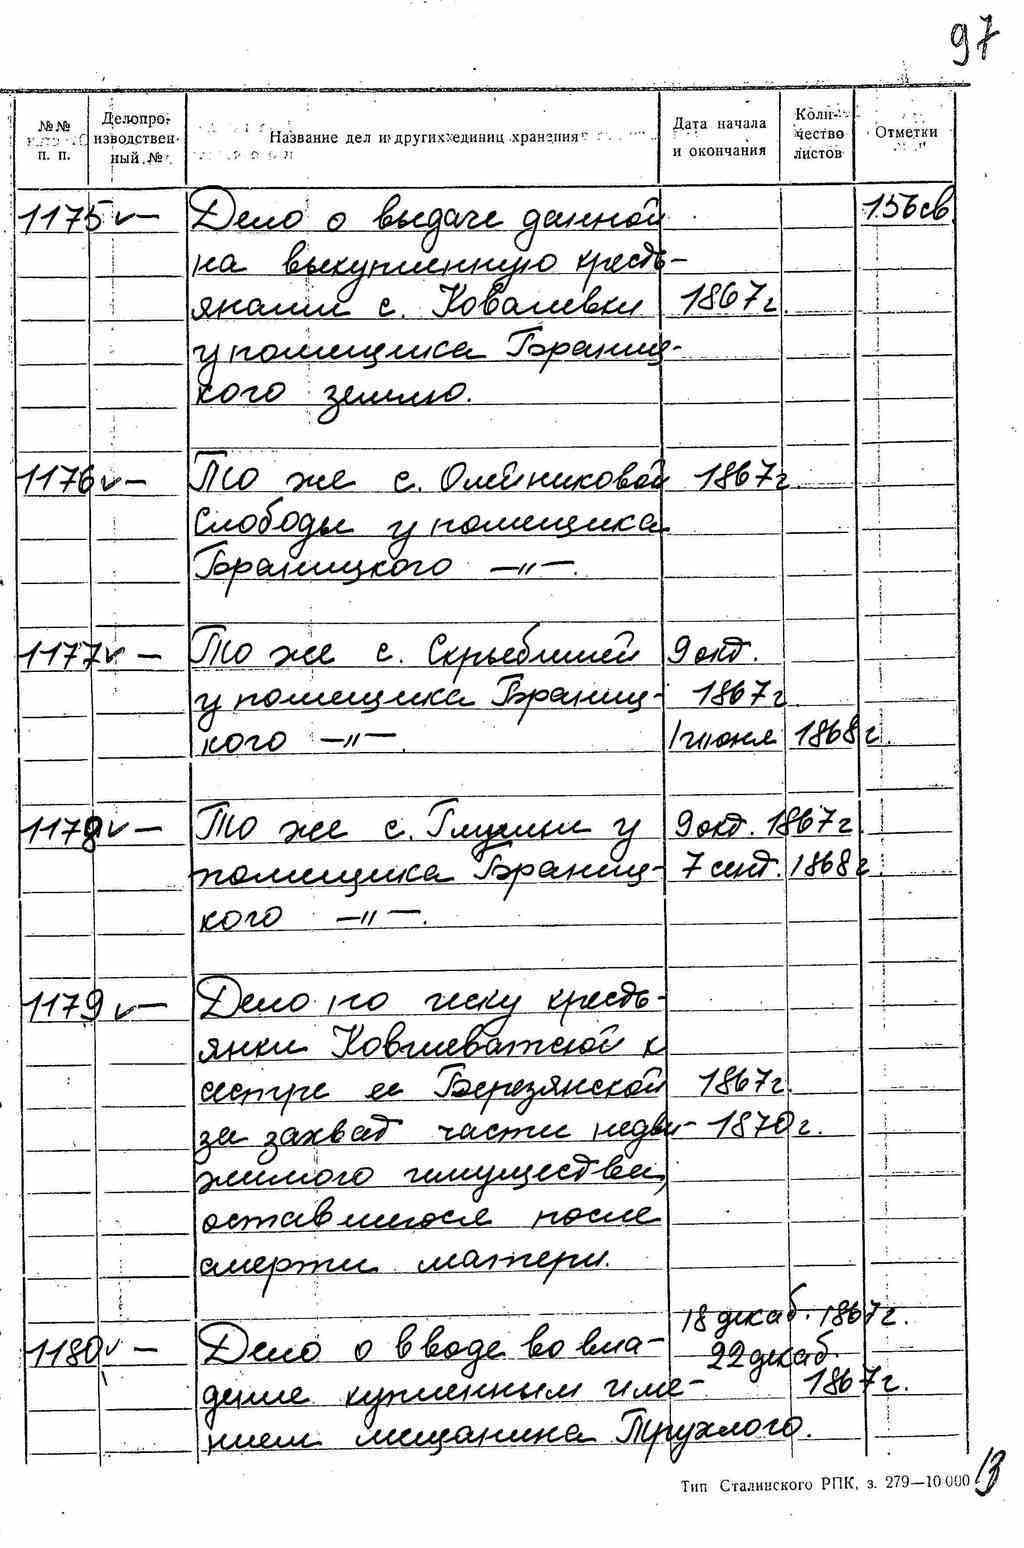 97
№№ п. п. Делопроизводственный № Название дел и других единиц хранения Дата начала и окончания Количество листов Отметки
1175 v — Дело о выдаче данной 156 св.
на выкупленную кресть-
янами с. Ковалевки 1867 г.
у помещика Браниц-
кого землю.
1176 v — То же с. Олейниковой 1867 г.
Слободы у помещика
Браницкого —"—.
1177 v — То же с. 9 окт.
у помещика Браниц- 1867 г.
кого —"—. 1 июня 1868 г.
1178 v — То же с. Глушки у 9 окт. 1867 г.
помещика Браниц- 7 сент. 1868 г.
кого —"—.
1179 v — Дело по иску кресть-
янки Ковшеватской к
сестре ее Березянской 1867 г.
за захват части недви- 1870 г.
жимого имущества,
оставшегося после
смерти матери.
18 декаб. 1867 г.
1180 v — Дело о вводе во вла- 22 декаб.
дение купленным име- 1867 г.
нием мещанина Трухлого.
Тип Сталинского РПК, з. 279—10 000
13